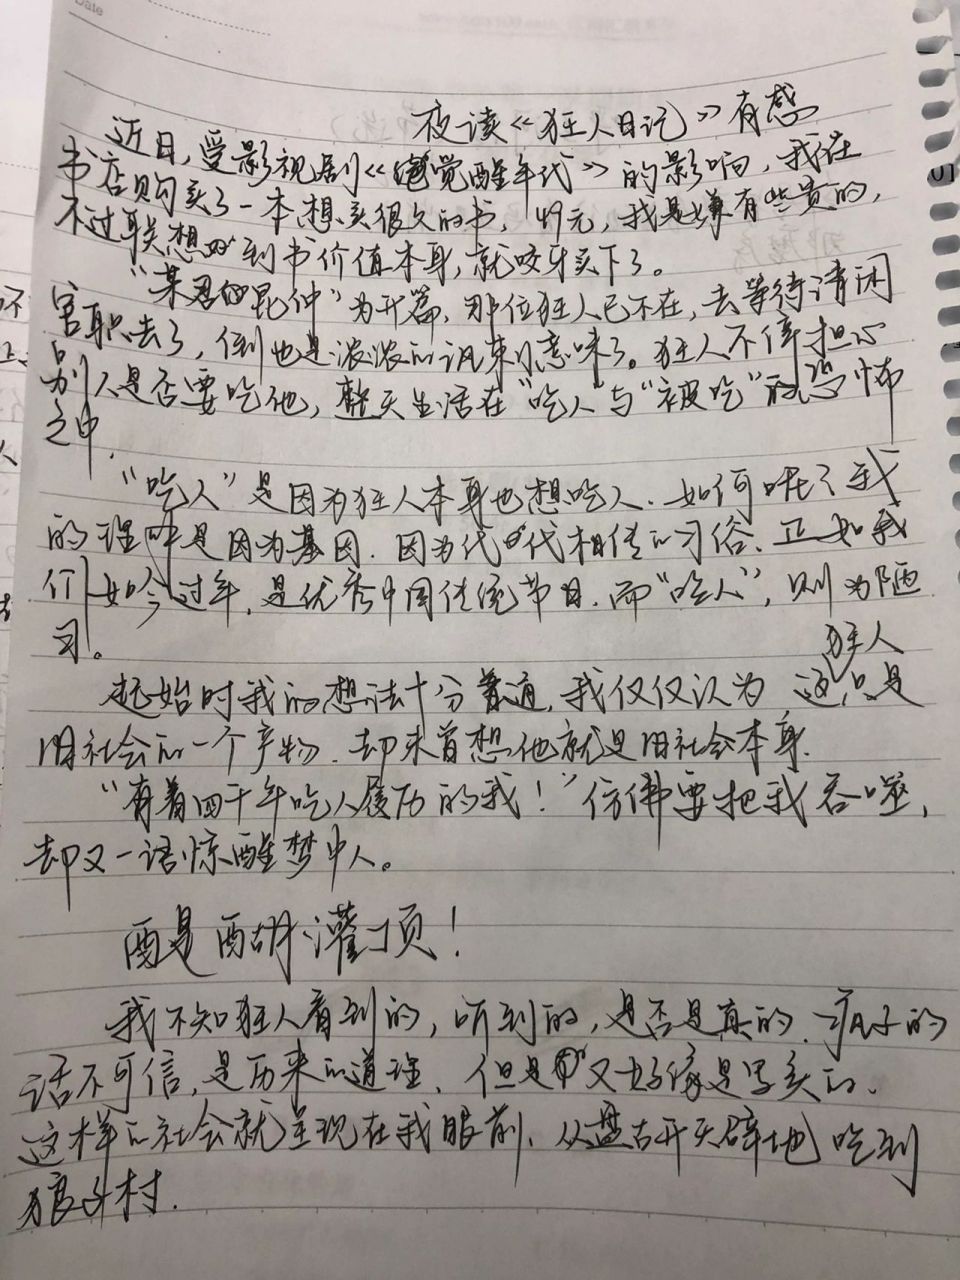 Date
夜读《狂人日记》有感
近日，受影视剧《觉醒年代》的影响，我在
书店购买了一本想买很久的书，49元，我是嫌有些贵的，
不过联想到书价值本身，就咬牙买下了。
"某君昆仲"为开篇，那位狂人已不在，去等待请闲
官职去了，倒也是浓浓的讽刺意味了。狂人不停担心
别人是否要吃他，整天生活在"吃人"与"被吃"的恐怖
之中.
"吃人"是因为狂人本身也想吃人.如何呢？我
的理解是因为基因.因为代代相传的习俗、正如我
们如今过年，是优秀中国传统节目.而"吃人"，则为陋
习。
起始时我的想法十分普通，我仅仅认为这狂人只是
旧社会的一个产物.却未曾想他就是旧社会本身.
"有着四千年吃人履历的我！"仿佛要把我吞噬，
却又一语惊醒梦中人。
醍醐灌顶！
我不知狂人看到的，听到的，是否是真的.疯子的
话不可信，是历来的道理.但是又好像是写实的.
这样的社会就呈现在我眼前.从盘古开天辟地吃到
狼子村.